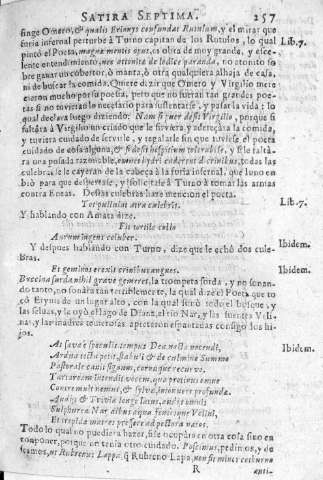 SATIRA SEPTIMA. 257
finge Omero, & qualis Erinys confundat Rutulum, y el mirar que
furia infernal perturbe à Turno capitan de los Rutulos, lo qual
pintò el Poeta, magnæ mentis opus, es obra de muy grande, y exce-
lente entendimiento, nec attonita de lodice paranda, no atonito so
bre ganar un cobertor, ò manta, ò otra qualquiera alhaja de casa,
ni de buscar la comida. Quiere dezir que Omero y Virgilio mere
cieron mucho por su poesia, pero que no fueran tan grandes poe-
tas si no tuvieran lo necesario para sustentarse, y pasar la vida: lo
qual declara luego diziendo: Nam si puer desit Virgilio, porque si
faltàra à Virgilio un criado que le sirviera y aderezara la comida,
y tuviera cuidado de servirle, y regalarle sin que tuviese el poeta
cuidado de cosa alguna, & si desit hospitium tolerabile, y si le faltà-
ra una posada razonable, omnes hydri caderent de crinibus, todas las
culebras se le cayeran de la cabeça à la furia infernal, que Iuno en
biò para que despertase, y solicitase à Turno à tomar las armas
contra Eneas. De estas culebras haze mencion el poeta.
Tot pullulat atra colubris.
Lib.7.
Y hablando con Amata dize.
Fit tortile collo
Aurum ingens coluber.
Ibidem.
Y despues hablando con Turno, dize que le echò dos cule-
bras.
Et geminos erexit crinibus angues.
Ibidem.
Buccina surda nihil grave gemeret, la trompeta sorda, y no sonan-
do tanto, no sonàra tan terriblemente, la qual dize el Poeta que to
cò Erynis de un lugar alto, con la qual sonò todo el bosque, y
las selvas, y la oyò el lago de Diana, el rio Nar, y las fuentes Veli-
nas, y las madres temerosas apretaron espantadas consigo los hi-
jos.
At sæva è speculis tempus Dea nacta nocendi,
Ibidem.
Ardua tecta petit, stabuli & de culmine summo
Pastorale canit signum, cornuque recurvo.
Tartaream intendit vocem, qua protinus omne
Contremuit nemus, & sylvæ intonuere profundæ.
Audijt & Triviæ longe lacus, audijt amnis
Sulphurea Nar albus aqua fontesque Velini,
Et trepidæ matres pressere ad pectora natos.
Todo lo qual no pudiera hazer, si se ocupàra en otra cosa sino en
componer, porque no tenia otro cuidado. Poscimus, pedimos, y de
seamos, ut Rubrenus Lappa, q̃ Rubreno Lapa, non sit minor cothurno
R anti-
Lib.7.